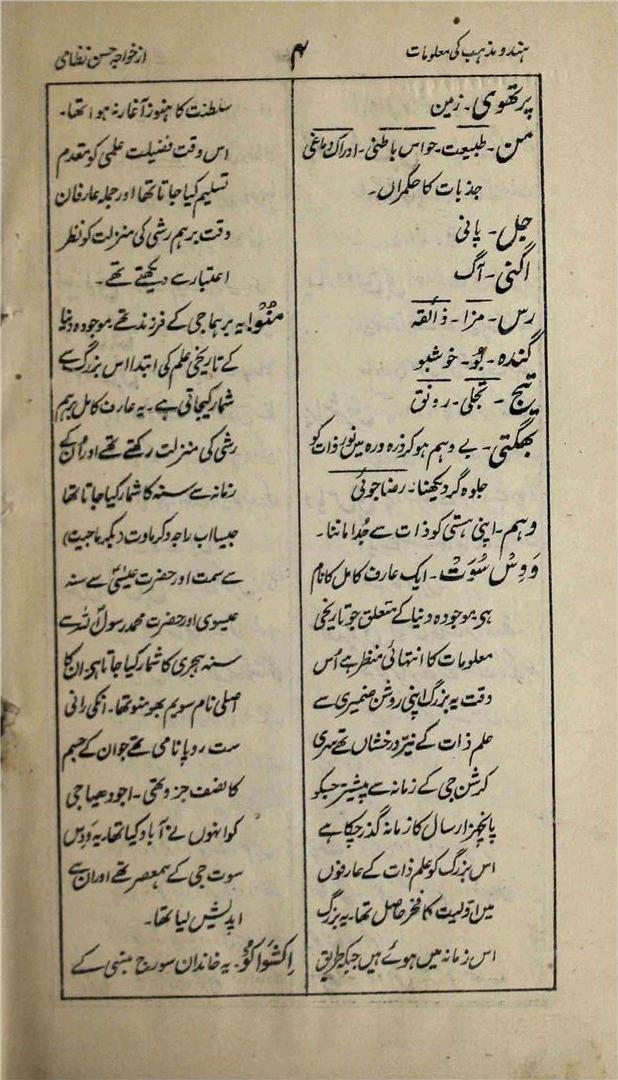 ہندو مذہب کی معلومات
۴
از خواجہ حسن نظامی
پرتھوی۔ زمین
من۔ طبیعت۔ حواس باطنی۔ ادراک دماغی
جذبات کا حکمراں۔
جل۔ پانی
اگنی۔ آگ
رس۔ مزا۔ ذائقہ
گندہ۔ بُو۔ خوشبو
تیج۔ تجلی۔ رونق
بھگتی۔ بے وہم ہو کر ذرہ ذرہ میں نور ذات کو
جلوہ گر دیکھنا۔ رضا جوئی
وہم۔ اپنی ہستی کو ذات سے جُدا ماننا۔
وَوِسْ سُوَت۔ ایک عارف کامل کا نام
ہی موجودہ دنیا کے متعلق جو تاریخی
معلومات کا انتہائی منظر ہے اُس
وقت یہ بزرگ اپنی روشن ضمیری سے
علم ذات کے نیّر درخشاں تھے سری
کرشن جی کے زمانہ سے پیشتر جسکو
پانچہزار سال کا زمانہ گذر چکا ہے
اس بزرگ کو علم ذات کے عارفوں
میں اوّلیت کا فخر حاصل تھا۔ یہ بزرگ
اس زمانہ میں ہوئے ہیں جبکہ طریق
سلطنت کا ہنوز آغاز نہ ہوا تھا۔
اس وقت فضیلت علمی کو مقدم
تسلیم کیا جاتا تھا اور جملہ عارفان
وقت برہم رشی کی منزلت کو نظر
اعتبار سے دیکھتے تھے۔
مَنُو۔ یہ برہما جی کے فرزند تھے موجودہ دنیا
کے تاریخی علم کی ابتدا اس بزرگ سے
شمار کیجاتی ہے۔ یہ عارف کامل برہم
رشی کی منزلت رکھتے تھے اور اُن کے
زمانہ سے سنہ کا شمار کیا جاتا تھا
جیسا اب راجہ وکرماوت (بکرماجیت)
سے سمت اور حضرت عیسیٰؑ سے سنہ
عیسوی اور حضرت محمد رسول اللہؐ سے
سنہ ہجری کا شمار کیا جاتا ہی ان کا
اصلی نام سویم بھو منو تھا۔ انکی رانی
ست روپا نامی تھے جو ان کے جسم
کا نصف جزو تھی۔ اجودھیا جی
کو انہوں نے آباد کیا تھا۔ یہ وَوِس
سوت جی کے ہمعصر تھے اور ان سے
اپدیش لیا تھا۔
اِکشواکُو۔ یہ خاندان سورج بنسی کے